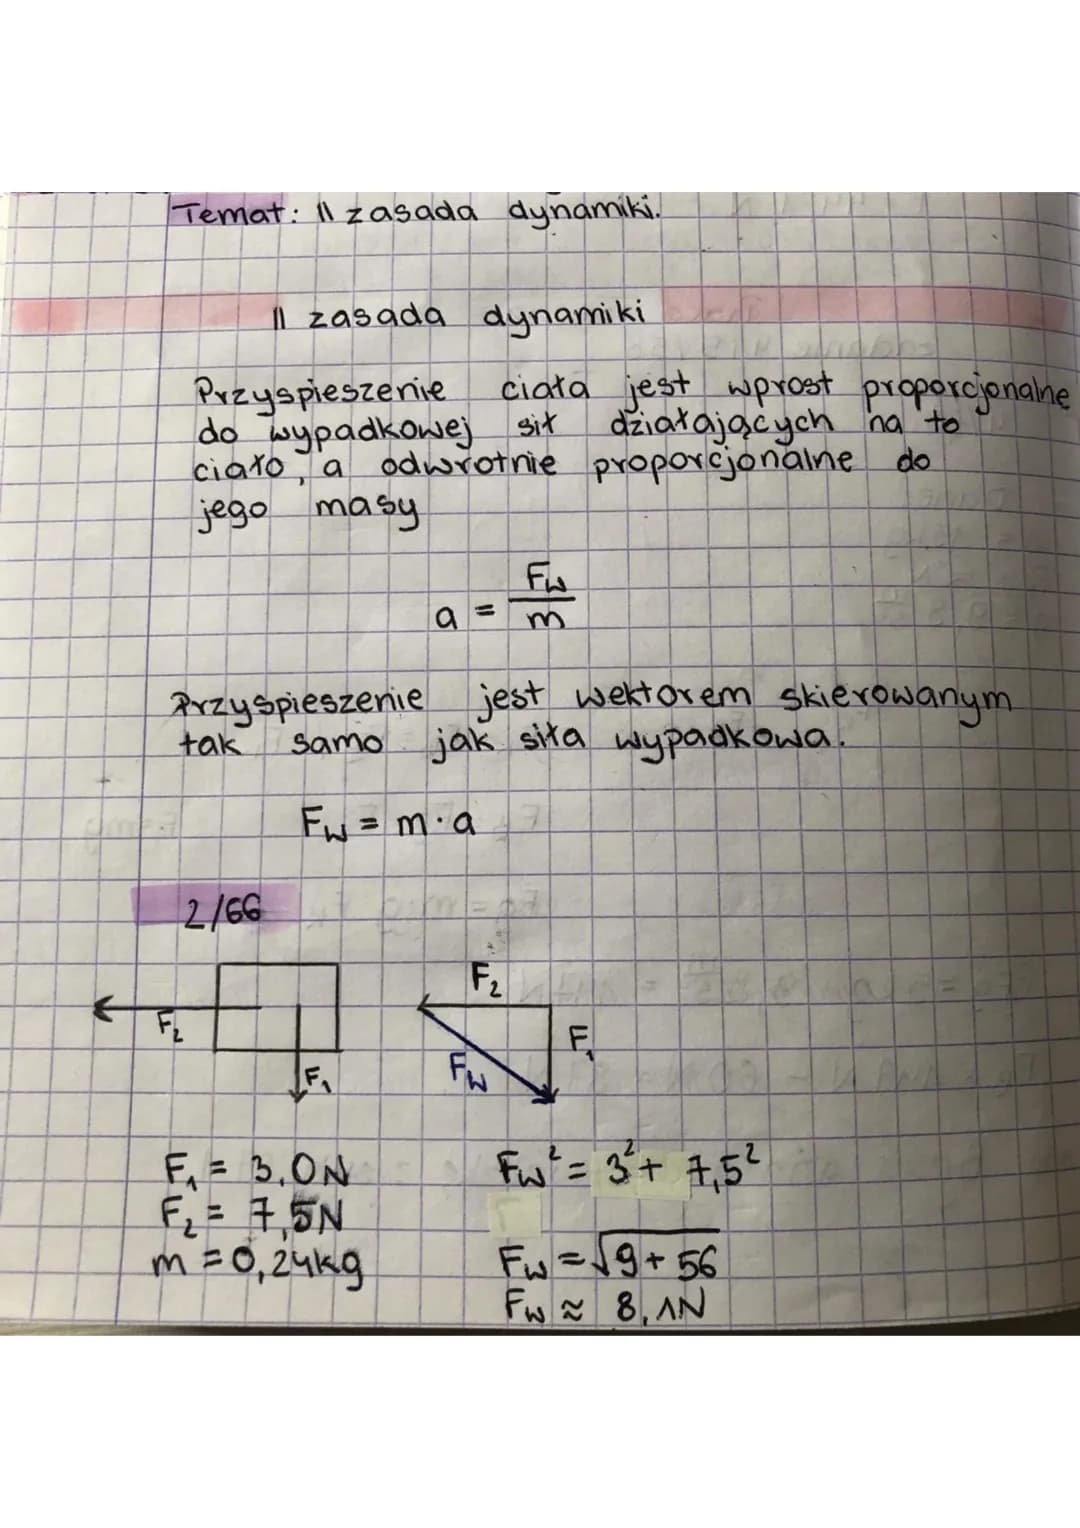 Temat: II zasada dynamiki.
II zasada dynamiki
Przyspieszenie ciała jest wprost proporcjonalne
do wypadkowej sił działających na to
ciało, a odwrotnie proporcjonalne do
jego masy
a = Fw/m
Przyspieszenie jest wektorem skierowanym
tak samo jak siła wypadkowa.
Fw = m·a
2/66
F₂
F₁
F₂
F₁
Fw
F₁ = 3,0N
F₂ = 7,5N
m = 0,24kg
Fw² = 3² + 7,5²
Fw = √9 + 56
Fw ≈ 8,1N